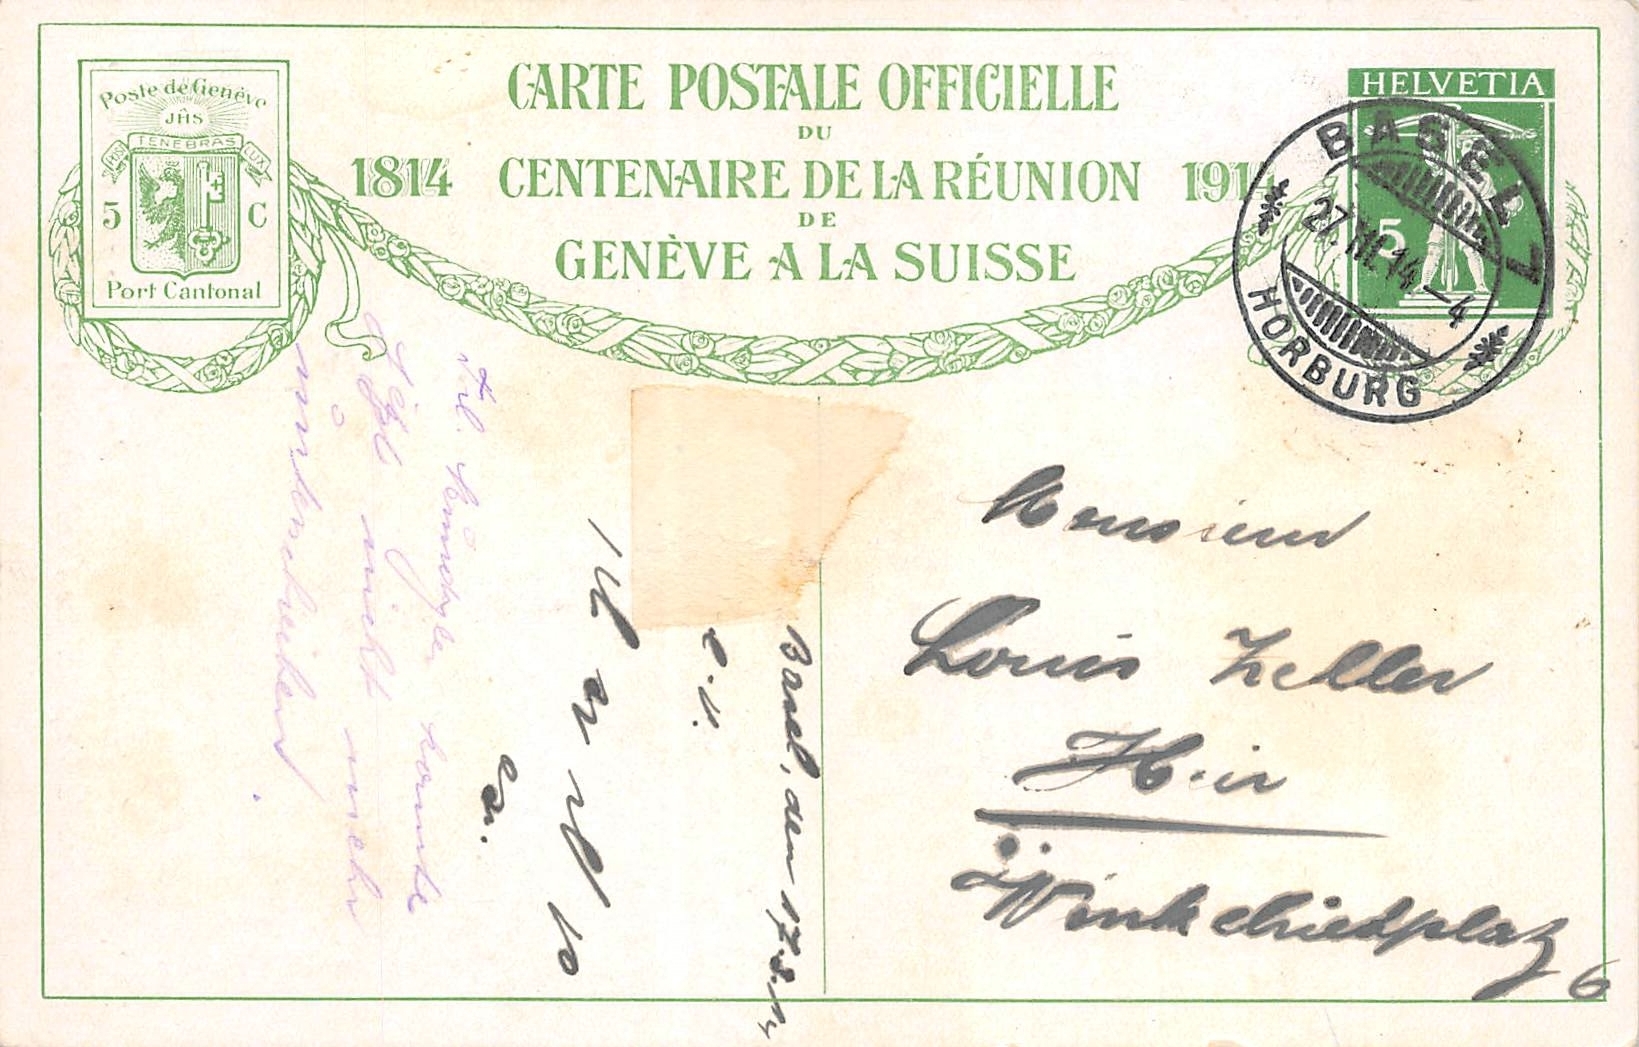 CARTE POSTALE OFFICIELLE
DU
1814 CENTENAIRE DE LA RÉUNION 1914
DE
GENÈVE A LA SUISSE
Poste de Genève
JHS
POST TENEBRAS LUX
5 C
Port Cantonal
HELVETIA
5
BASEL 7
27.III.14-4
HORBURG
Monsieur
Louis Zeller
Hier
Winkelriedplatz
6
Basel, den
Frl. konnte
nicht mehr
unterschreiben.